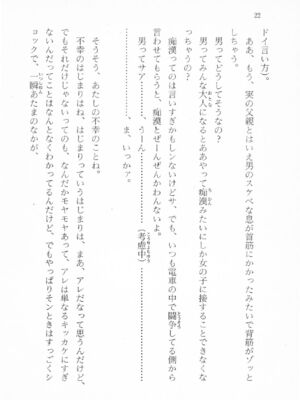 22
ドイ言い方)。
ああ、もう、実の父親とはいえ男のスケベな息が首筋にかかったみたいで背筋がゾッと
しちゃう。
男ってどうしてそうなの?
男ってみんな大人になるとああやって痴漢みたいにしか女の子に接することできなくな
っちゃうの?
痴漢ってのは言いすぎかもしンないけどサ、でも、いつも電車の中で闘争してる側から
言わせてもらうと、痴漢とぜーんぜんかわんないよ。
男ってサア……………、うーん……………(考慮中)
……………、ま、いっかァ。
そうそう、あたしの不幸のことね。
不幸のはじまりはね、はじまりっていうはじまりは、まあ、アレだなって思うんだけど、
でもそれだけじゃないってのも、なんだかモヤモヤあって、アレは単なるキッカケにすぎ
ないんだってことはなんとなくわかってるんだけど、でもやっぱりそンときはすっごくシ
ョックで、一瞬あたまのなかが、